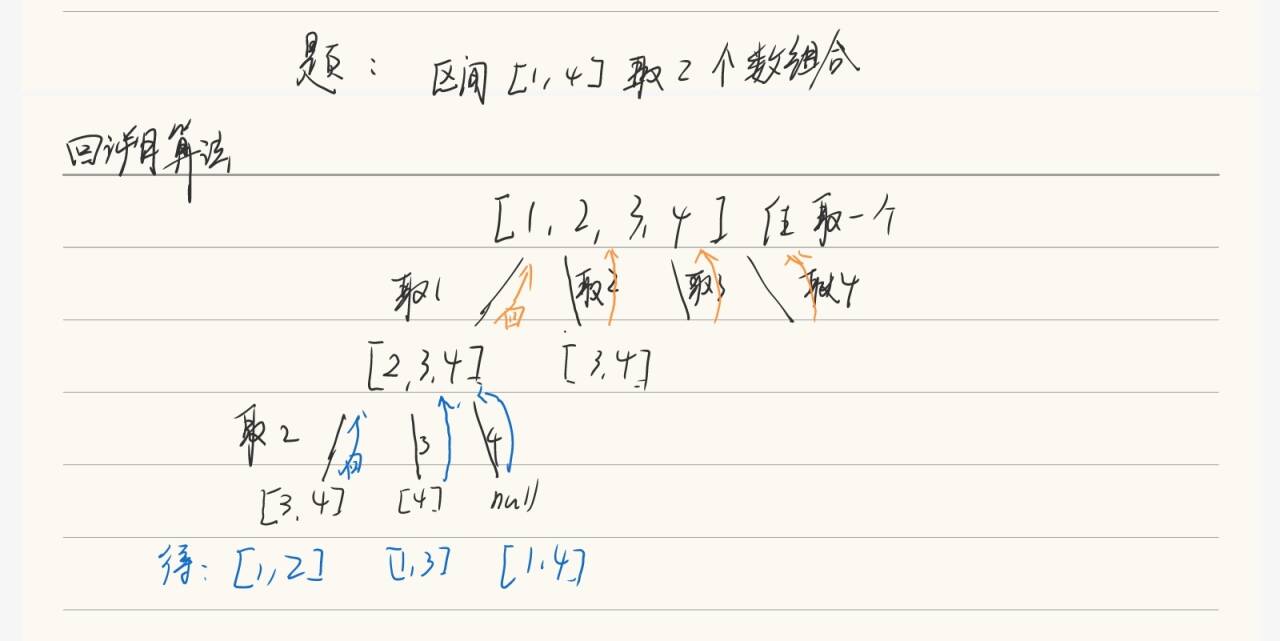 题: 区间[1,4]取2个数组合
回溯算法
[1,2,3,4] 任取一个
取1 回 取2 取3 取4
[2,3,4] [3,4]
取2 回 3 4
[3,4] [4] null
得: [1,2] [1,3] [1,4]